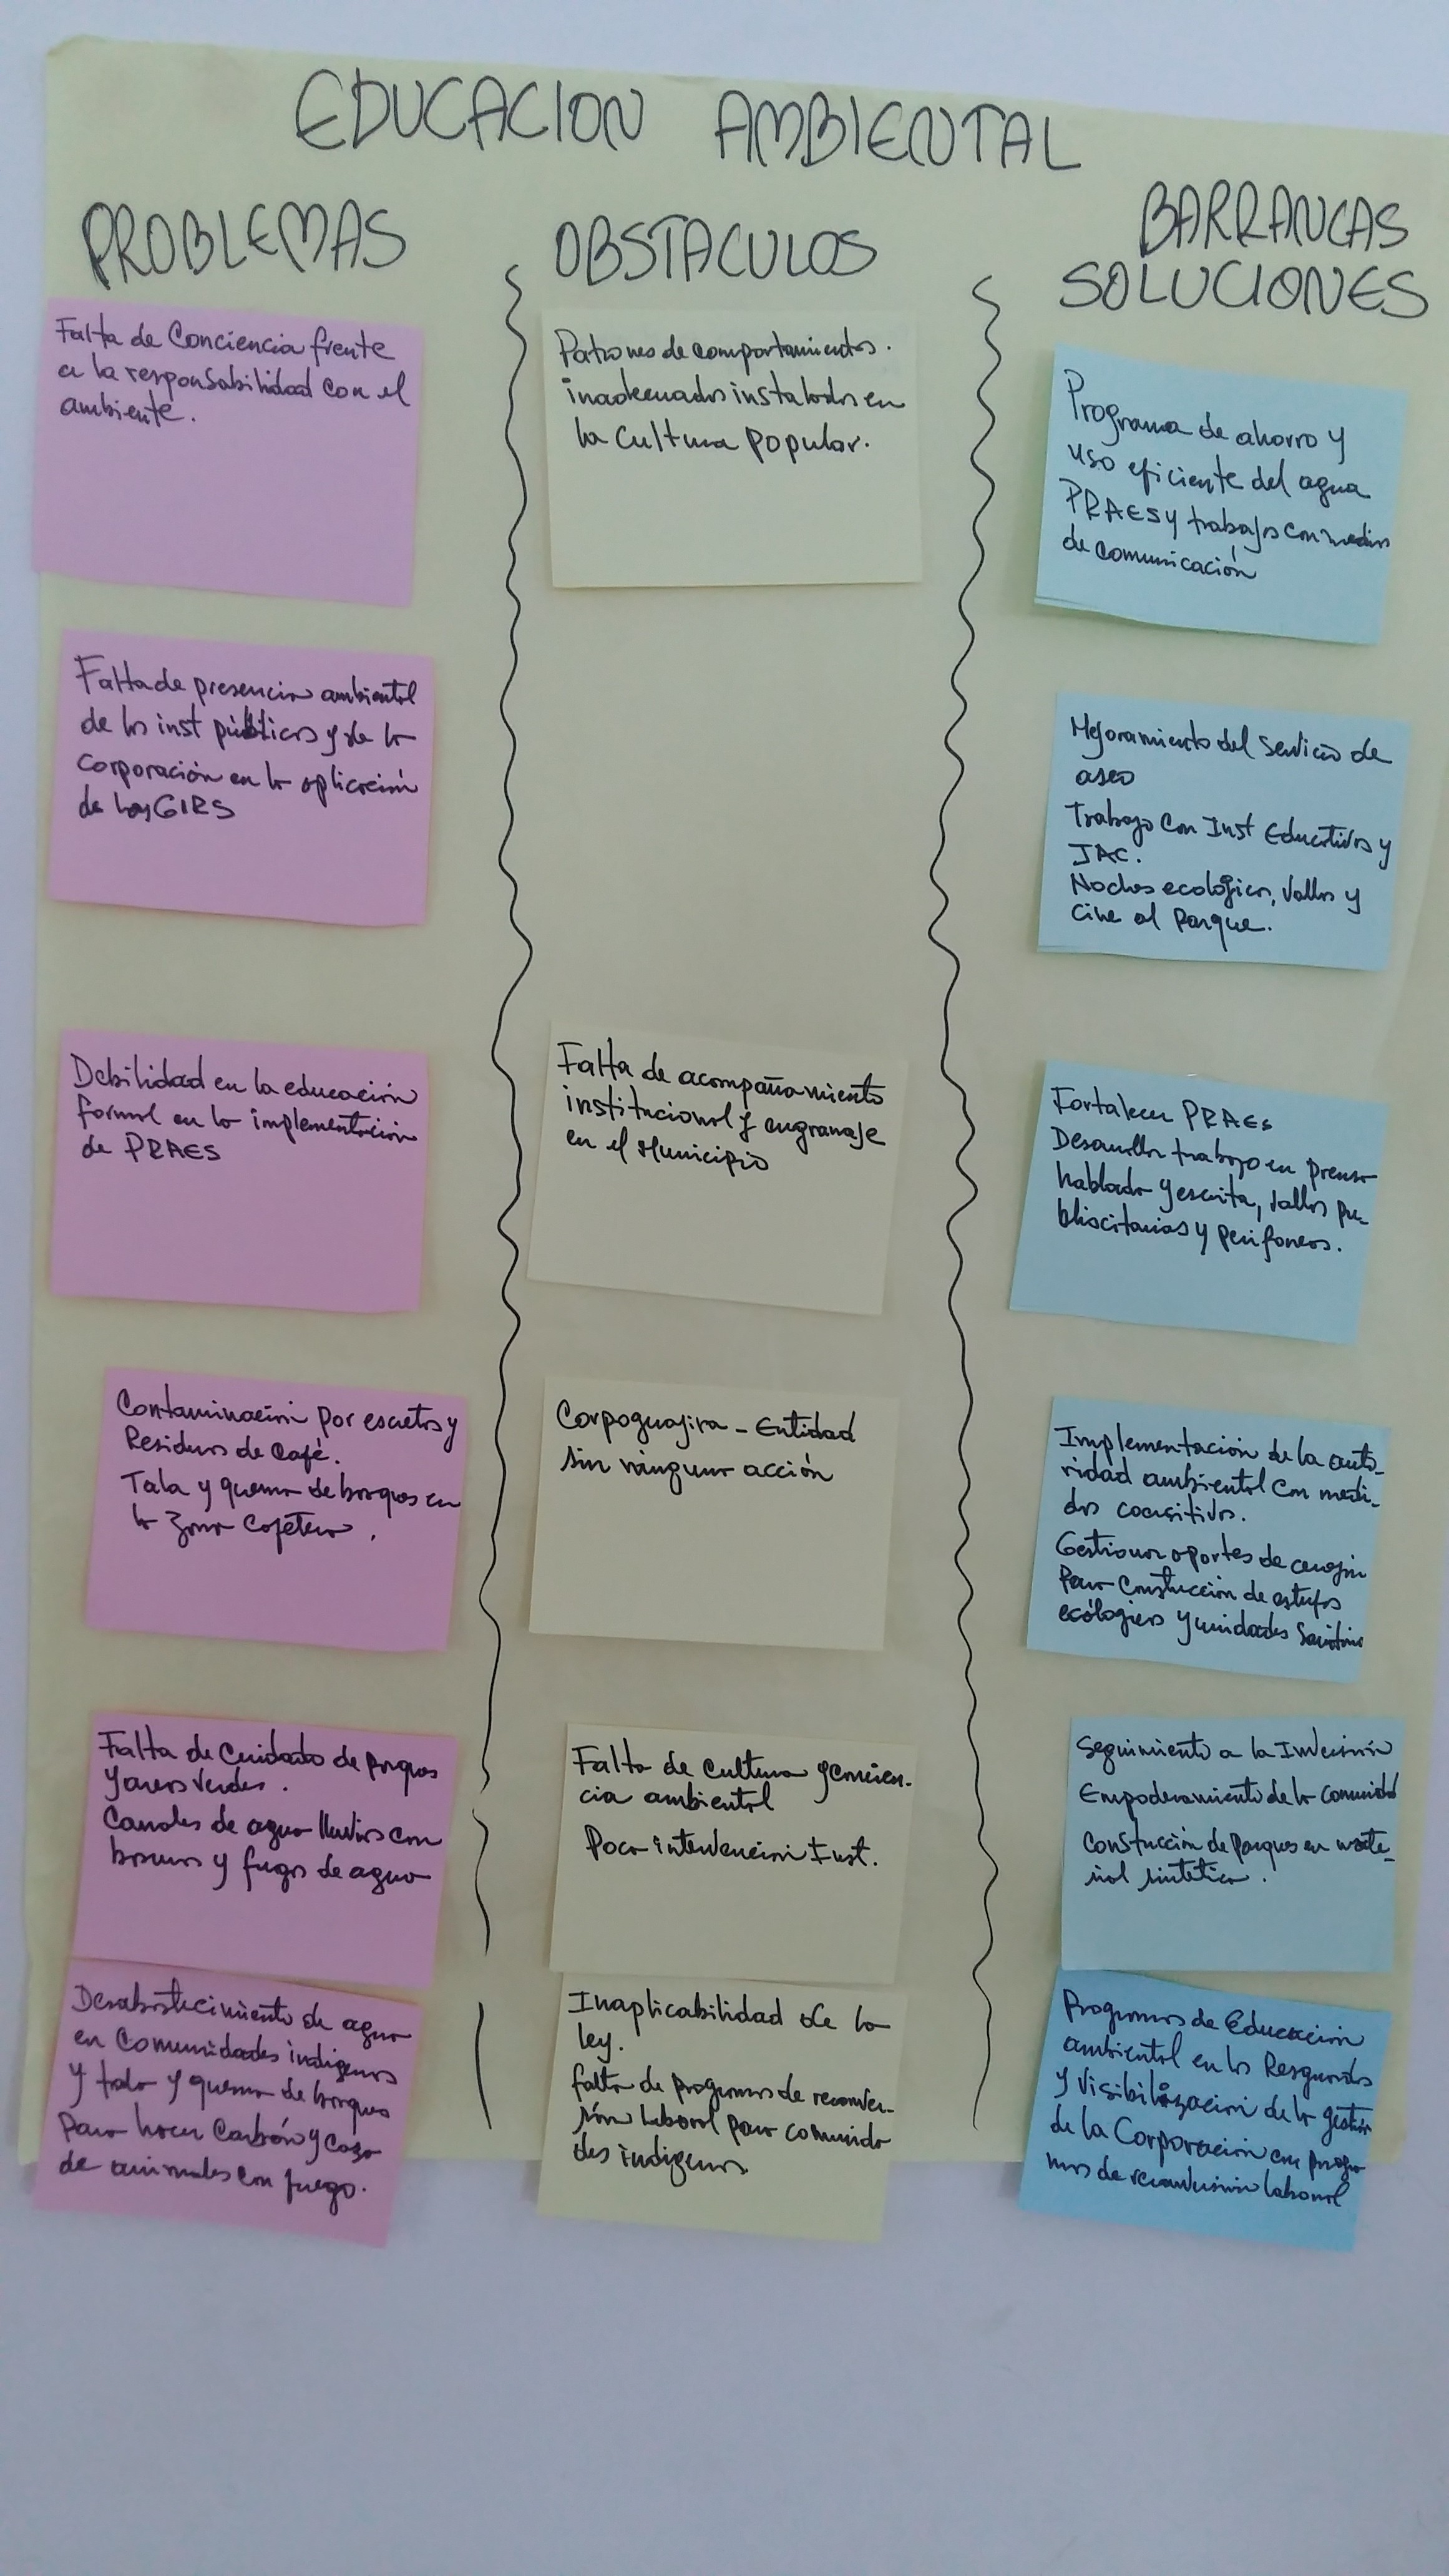 EDUCACION AMBIENTAL
BARRANCAS
PROBLEMAS
OBSTACULOS
SOLUCIONES
Falta de Conciencia frente
a la responsabilidad con el
ambiente.
Patrones de comportamientos.
inadecuados instalados en
la Cultura Popular.
Programa de ahorro y
uso eficiente del agua
PRAES y trabajos con medios
de comunicación
Falta de presencia ambiental
de las inst públicas y de la
corporación en la aplicación
de los GIRS
Mejoramiento del Servicio de
aseo
Trabajo con Inst Educativas y
JAC.
Noches ecológicas, vallas y
cine al Parque.
Debilidad en la educación
formal en la implementación
de PRAES
Falta de acompañamiento
institucional y engranaje
en el Municipio
Fortalecer PRAEs
Desarrollar trabajo en prensa
hablada y escrita, vallas pu-
bliscitarias y perifoneos.
Contaminación por escretos y
Residuos de Café.
Tala y quema de bosques en
la zona cafetera.
Corpoguajira - Entidad
sin ninguna acción
Implementación de la auto-
ridad ambiental con medi-
das coersitivas.
Gestionar aportes de
para Construcción de estufas
ecólogicas y unidades Sanitarias
Falta de Cuidado de parques
y areas verdes.
Canales de agua lluvias con
basuras y fugas de agua
Falta de cultura y concien-
cia ambiental
Poca intervención Inst.
Seguimiento a la Inversión
Empoderamiento de la comunidad
Construcción de Parques en mate-
rial sintético.
Desabastecimiento de agua
en Comunidades indigenas
y tala y quema de bosques
para hacer Carbón y Caza
de animales con fuego.
Inaplicabilidad de la
ley.
falta de programas de reconver-
sión laboral para comunida
des indigenas
Programas de Educación
ambiental en los Resguardos
y visibilización de la gestión
de la Corporación en progra
mas de reconversión laboral